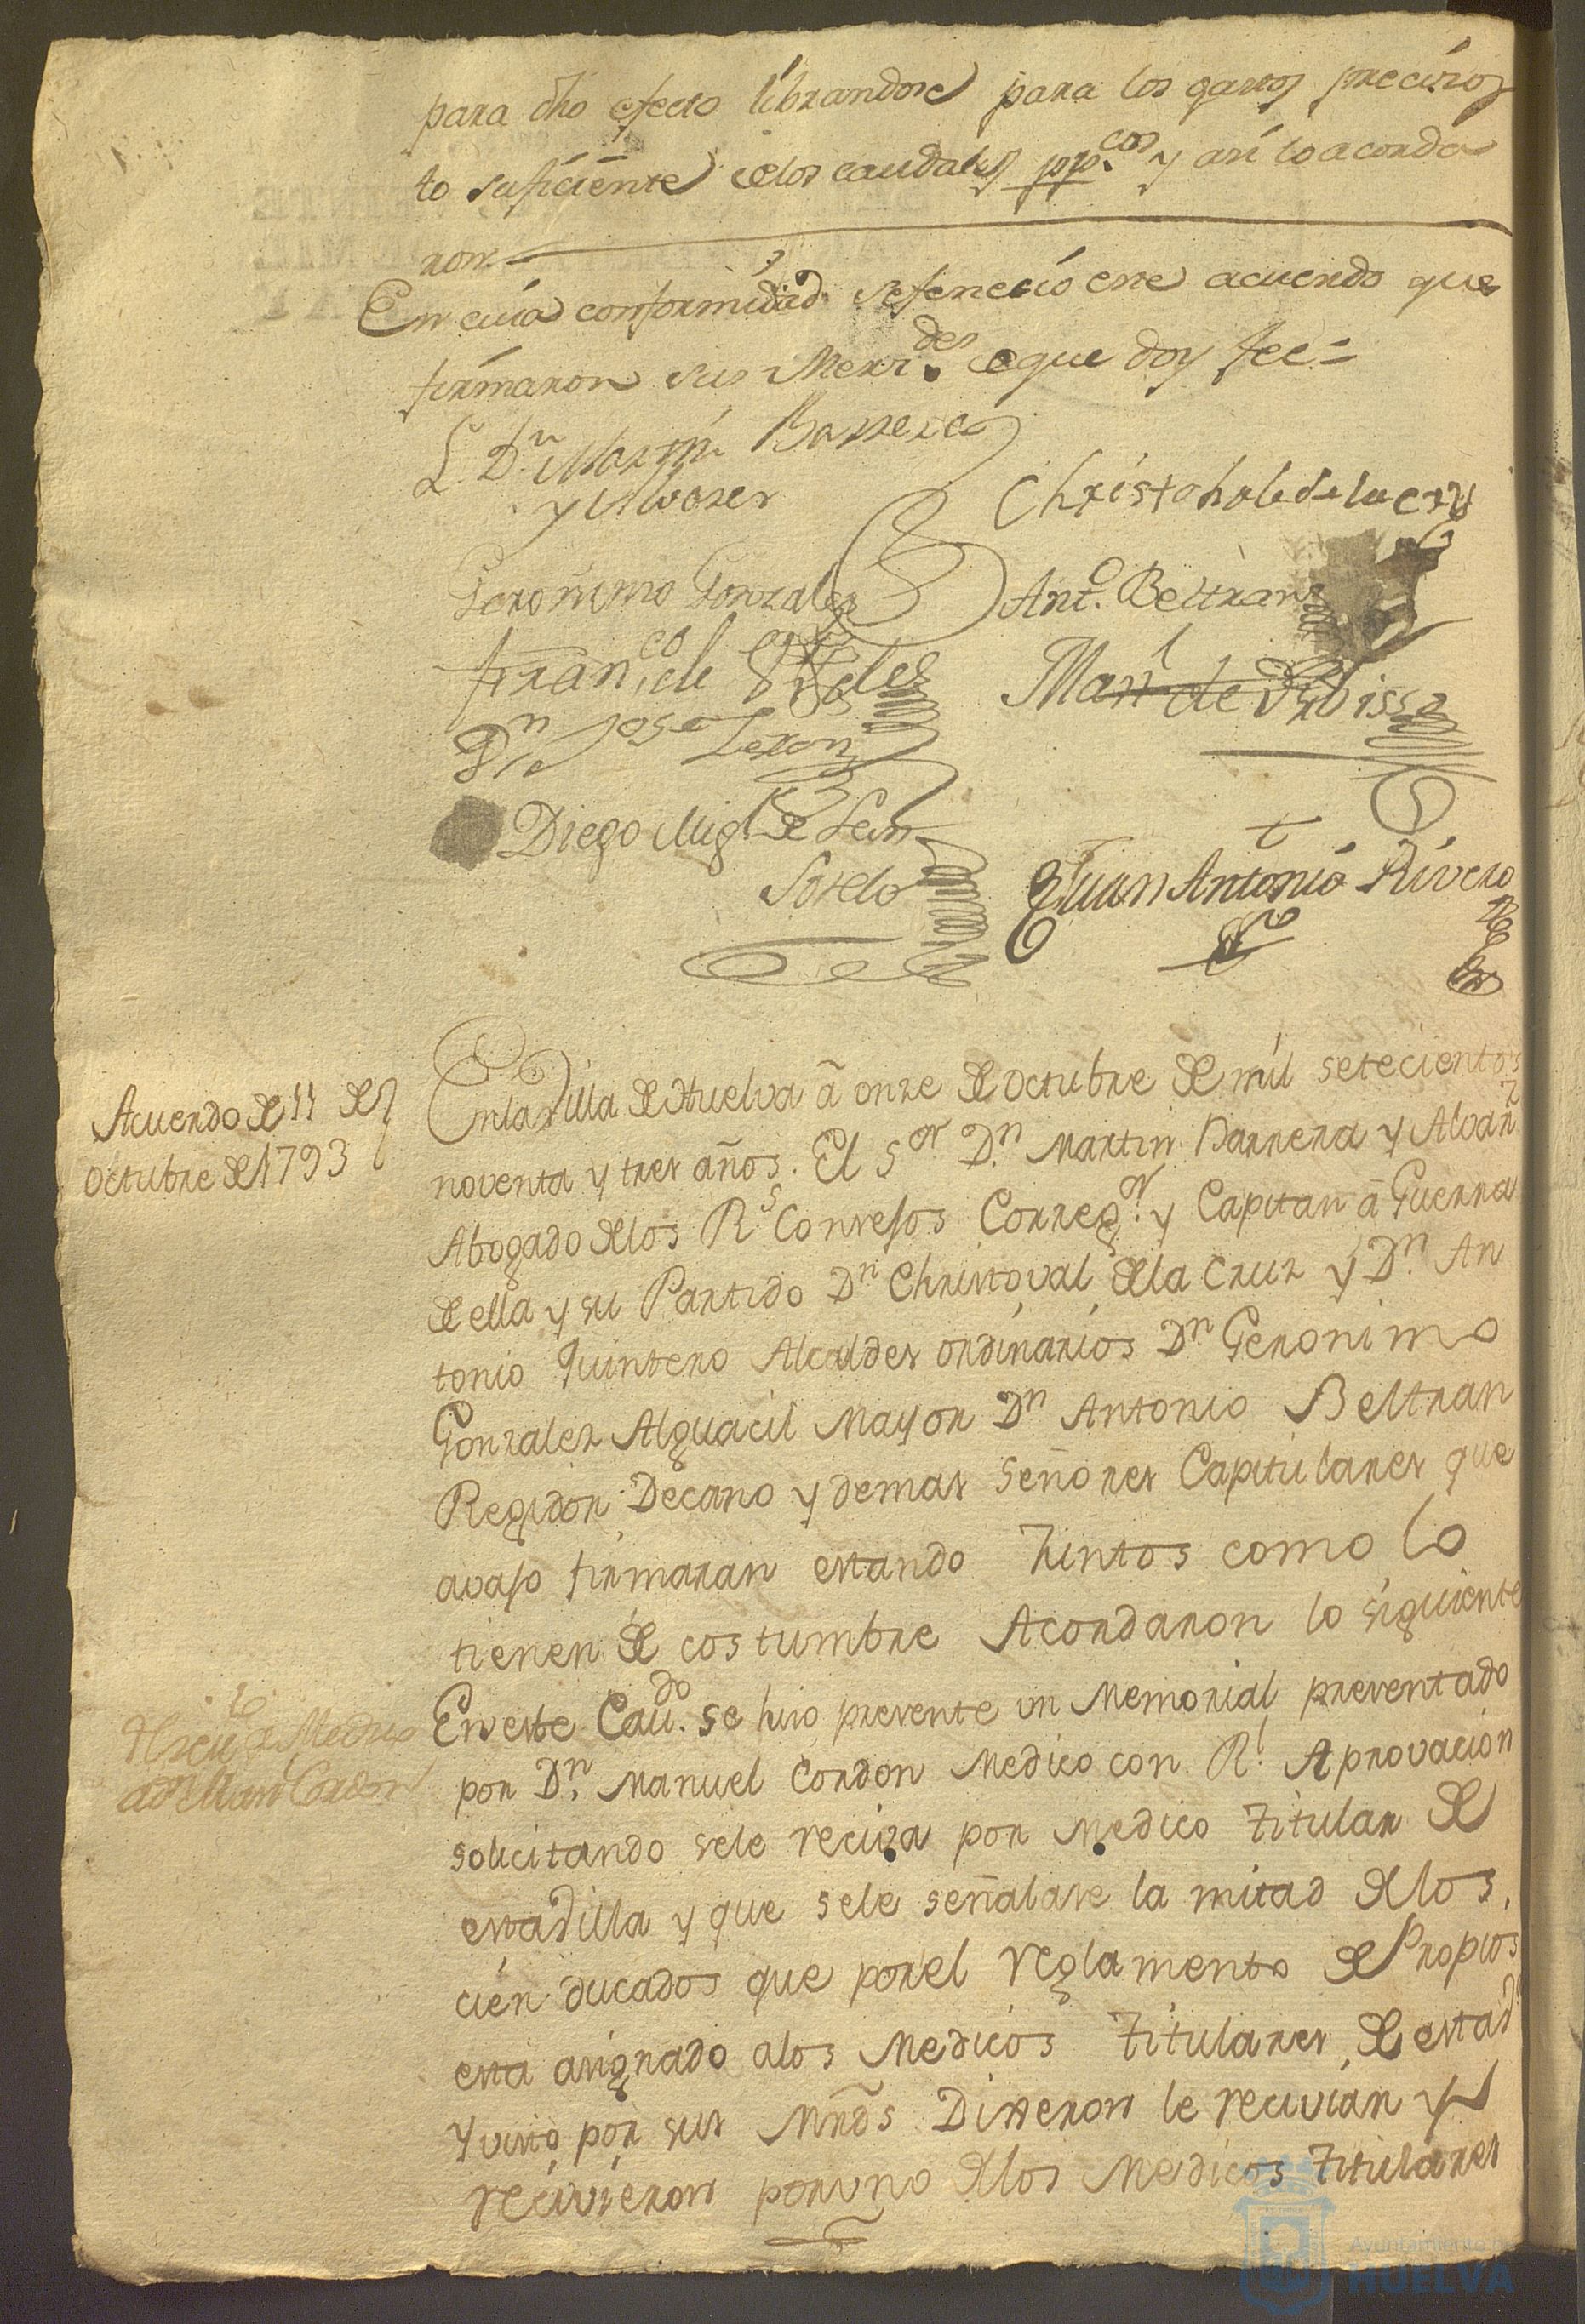 para dho efecto librandose para los gastos precisos
lo suficiente de los caudales pp.cos y asi lo acorda
ron.
En cuia conformidad se fenecio este acuerdo que
firmaron sus Merz.des de que doy fee =
L. Dn. Martin Barrera
y Alvarez
Christobal de la Cruz
Geronimo Gonzalez
Anto. Beltran
Franco. de
Manl de
Dn Jose Leron
Diego Migl. de San
Sotelo
Juan Antonio Rivero
Acuerdo de 11 de
Octubre de 1793
En la Villa de Huelva â onze de Octubre de mil setecientos
noventa y tres años. El Sor Dn. Martin Barrera y Alvarz
Abogado de los Rs Consejos Correg.or y Capitan â Guerra
de ella y su Partido Dn Christoval de la Cruz y Dn. An
tonio Quintero Alcaldes ordinarios Dn Geronimo
Gonzalez Alguacil Mayor Dn Antonio Beltran
Regidor Decano y demas Señores Capitulares que
avajo firmaran estando Juntos como lo
tienen de costumbre Acordaron lo siguiente
En este Cau.do se hizo presente un Memorial presentado
por Dn. Manuel Cordon Medico con Rl. Aprovacion
solicitando sele reciva por Medico Titular de
esta Villa y que sele señalase la mitad de los
cien ducados que por el reglamento de Propios
esta asignado a los Medicos Titulares de esta V
y visto por sus Mrds Dixeron le recivian y
recivieron por uno de los Medicos Titulares
de Medico
a Dn Manl Cordon
Ayuntamiento de
HUELVA